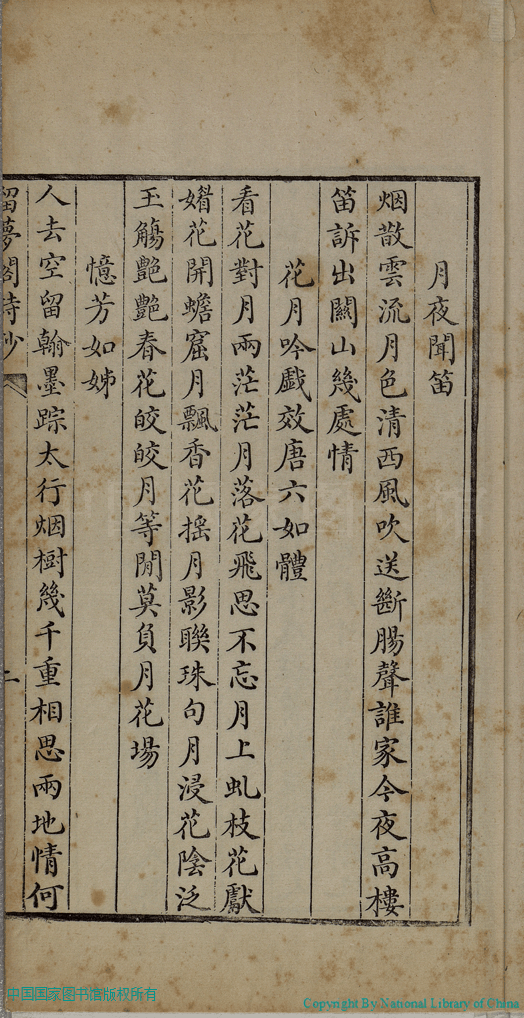 月夜聞笛
烟散雲流月色清西風吹送斷腸聲誰家今夜高樓
笛訴出關山幾處情
花月吟戲效唐六如體
看花對月兩茫茫月落花飛思不忘月上虬枝花獻
媚花開蟾窟月飄香花摇月影聯珠句月浸花陰泛
玉觴艷艷春花皎皎月等閒莫負月花場
憶芳如姊
人去空留翰墨踪太行烟樹幾千重相思兩地情何
留夢閣詩抄
二
中国国家图书馆版权所有
Copyright By National Library of China